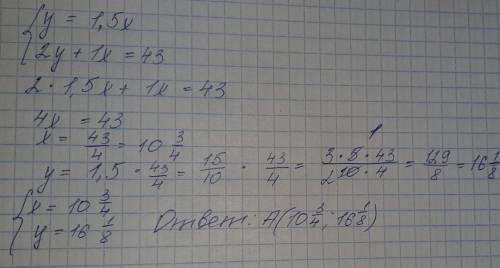 { y = 1,5x
2y + 1x = 43
2 · 1,5x + 1x = 43
4x = 43
x = 43/4 = 10 3/4
y = 1,5 · 43/4 = 15/10 · 43/4 = 3·5·43/2 10·4 = 129/8 = 16 1/8
1
{ x = 10 3/4
y = 16 1/8
Ответ: A(10 3/4; 16 1/8)